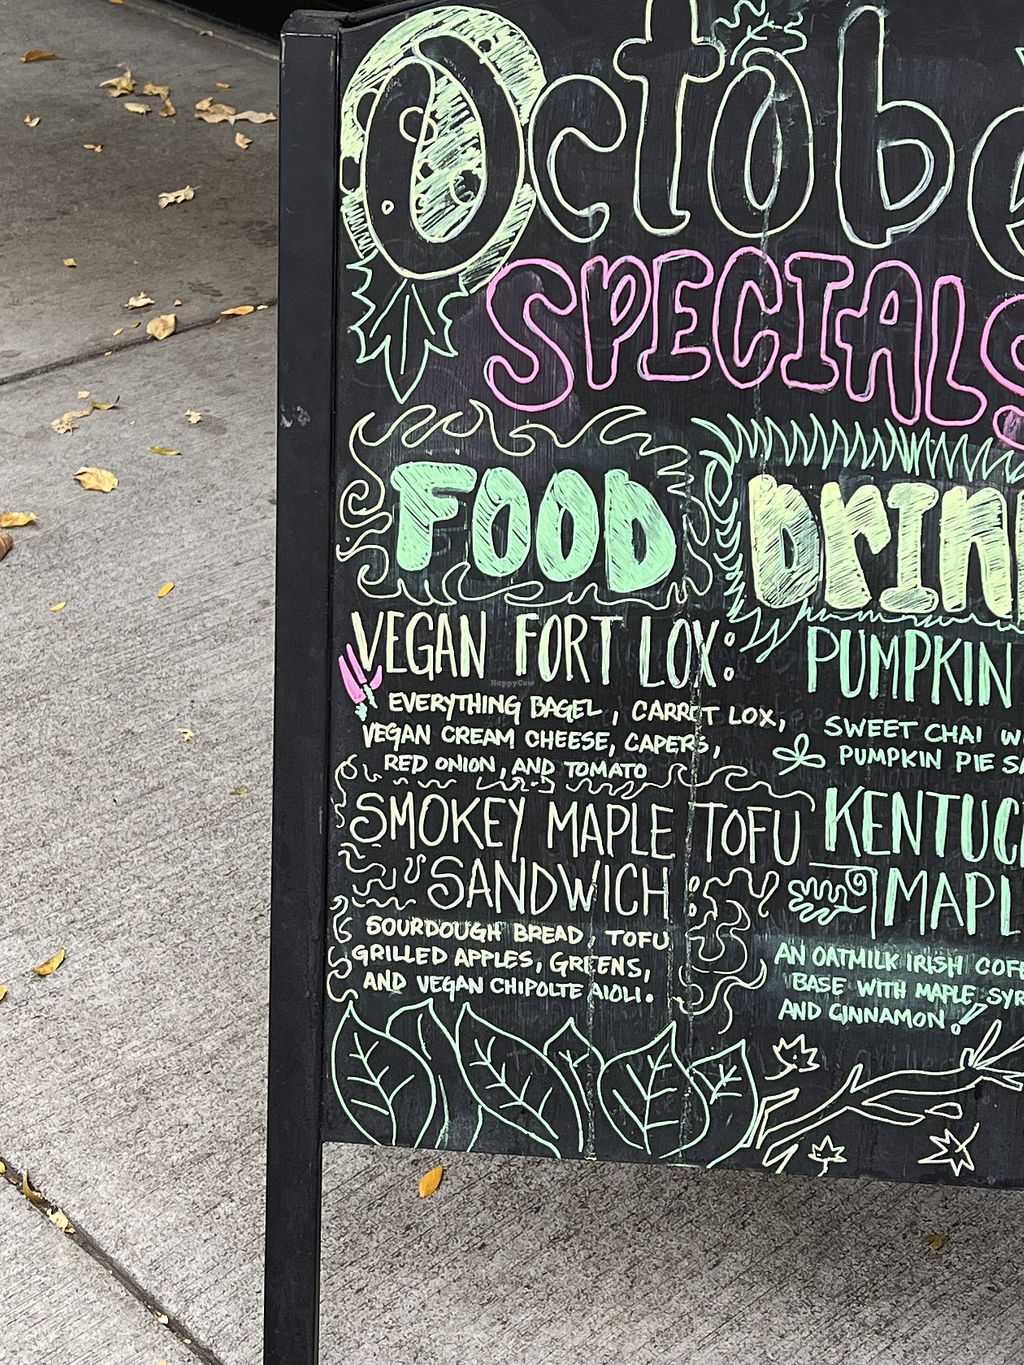 Octobe
SPECIALS
FOOD
VEGAN FORT LOX:
EVERYTHING BAGEL, CARROT LOX,
VEGAN CREAM CHEESE, CAPERS,
RED ONION, AND TOMATO
SMOKEY MAPLE TOFU
SANDWICH:
SOURDOUGH BREAD, TOFU
GRILLED APPLES, GREENS,
AND VEGAN CHIPOLTE AIOLI.
DRIN
PUMPKIN
SWEET CHAI W
PUMPKIN PIE SA
KENTUC
MAPL
AN OATMILK IRISH COFF
BASE WITH MAPLE SYR
AND CINNAMON!
HappyCow